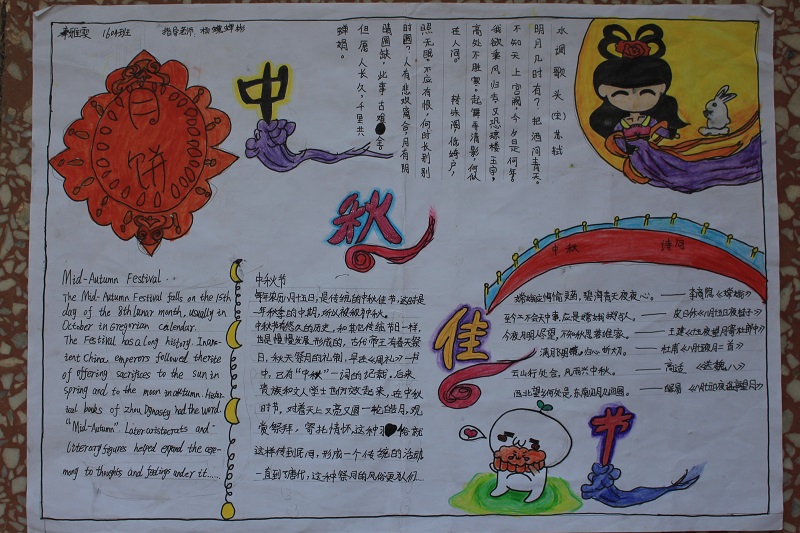 1604班
指导老师
月饼
中
秋
佳
节
水调歌头(宋)苏轼
明月几时有?把酒问青天。
不知天上宫阙,今夕是何年。
我欲乘风归去,又恐琼楼玉宇,
高处不胜寒。起舞弄清影,何似
在人间。 转朱阁,低绮户,
照无眠。不应有恨,何时长别别
时圆?人有悲欢离合,月有阴
晴圆缺,此事古难全
但愿人长久,千里共
婵娟。
Mid-Autumn Festival...
The Mid-Autumn Festival falls on the 15th
day of the 8th lunar month, usually in
October in Gregorian calendar.
The Festival has a long history. In anc-
ient China, emperors followed the rite
of offering sacrifices to the sun in
spring and to the moon in autumn. Histor-
ical books of zhou Dynasty had the word.
"Mid-Autumn". Later aristocrats and
literary figures helped expand the cere-
mony to thoughts and feelings under it......
中秋节
每年农历八月十五日,是传统的中秋佳节,这时是
一年秋季的中期,所以被称为中秋。
中秋节有悠久的历史,和其它传统节日一样,
也是慢慢发展形成的,古代帝王有春天祭
日,秋天祭月的礼制,早在《周礼》一书
中,已有"中秋"一词的记载,后来
贵族和文人学士也仿效起来,在中秋
时节,对着天上又亮又圆一轮皓月,观
赏祭拜,寄托情怀,这种习俗就
这样传到民间,形成一个传统的活动
一直到了唐代,这种祭月的风俗更为人们...
中秋 诗句
嫦娥应悔偷灵药,碧海青天夜夜心。——李商隐《嫦娥》
至今不会天中事,应是嫦娥掷与人。——皮日休《八月十五夜桂子》
今夜月明人尽望,不知秋思落谁家。——王建《十五夜望月寄杜郎中》
满目飞明镜,归心折大刀。——杜甫《八月十五夜月二首》
云山行处合,风雨兴中秋。——高适
西北望乡何处是,东南见月几回圆。